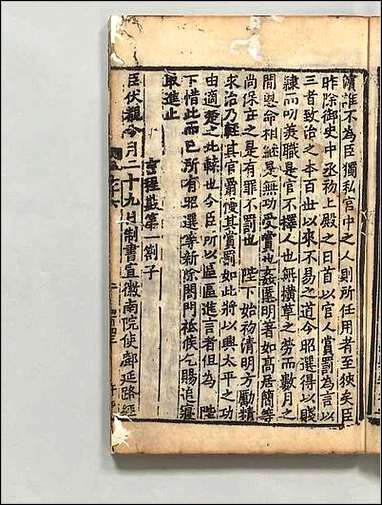 瀆誰不為臣獨私官中之人則所任用者至狹矣臣
昨除御史中丞初上殿之日首以官人賞罰為言以
三者致治之本百世以來不易之道今昭選得以賤
隸而叨兼職是官不擇人也無橫草之勞而數月之
間恩命相繼是無功受賞也姦匿明著如高居簡等
尚保立之是有罪不罰也 陛下始初清明方勵精
求治乃輕其官爵僣其賞罰如此將以興太平之功
由適楚之北轅也今臣所以區區進言者但為 陛
下惜此而已所有昭選等新除閤門祗候乞賜追寢
取進止
言程戡第一劄子
臣伏覩今月二十九日制書宣徽南院使鄜延路經